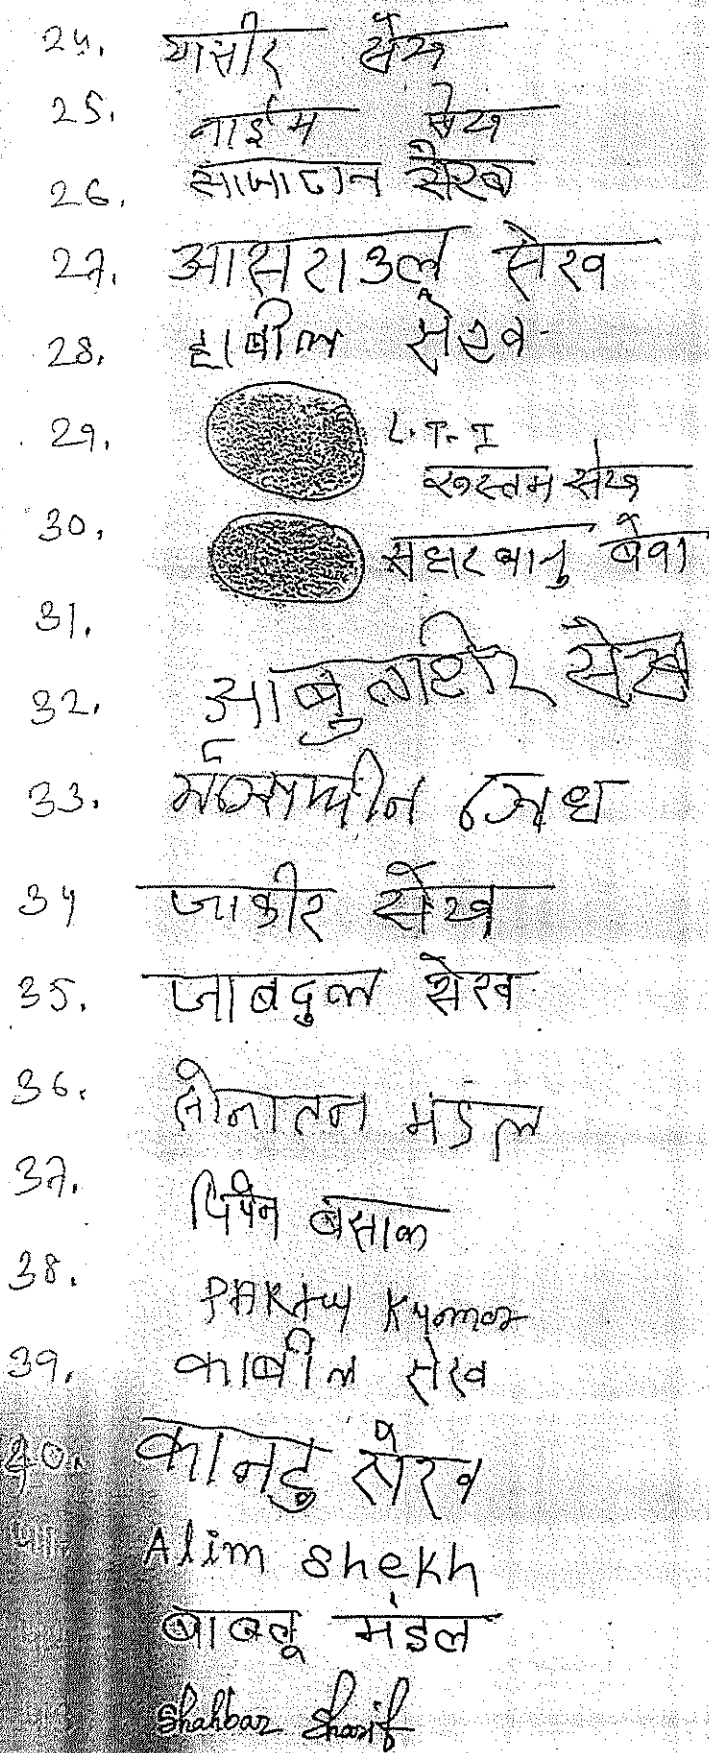 24. यासीर सेख
25. नाईम सेख
26. साजादान सेख
27. आसराउल सेख
28. हाबील सेख
29. L.T.I
रुस्तम सेख
30. सहारबानु बेवा
31.
32. आबु ताहीर सेख
33.
34 जाकीर सेख
35. जाबदुल सेख
36. सोनातन मंडल
37. दिपेन बसाक
38. Kumar
39. काबील सेख
40. कानटु सेख
41. Alim Shekh
बाबलू मंडल
Shahbaz Sharif